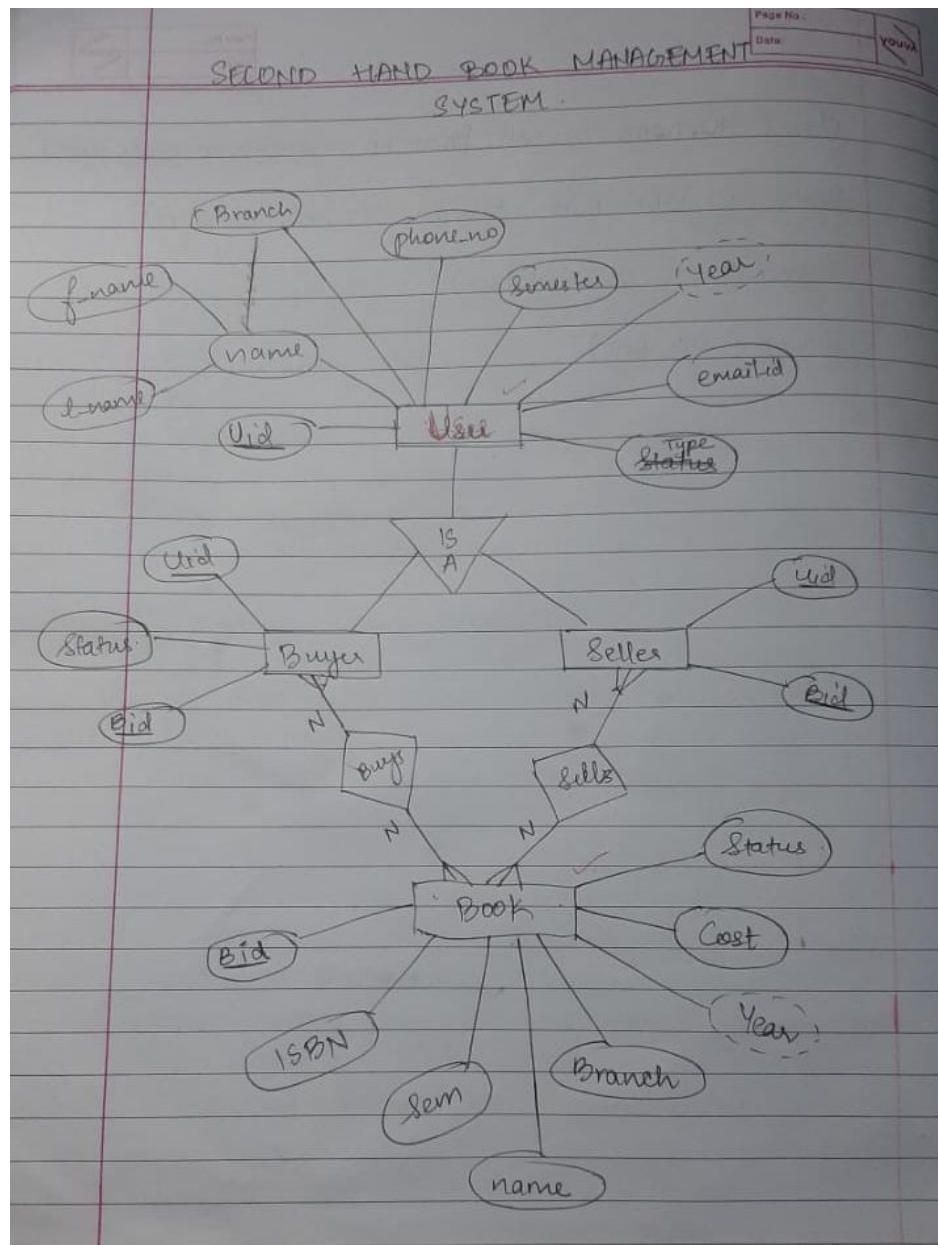 Page No.:
Date:
youva
SECOND HAND BOOK MANAGEMENT
SYSTEM.
Branch
phone_no
Semester
Year
f_name
name
email-id
l_name
Uid
User
Type
Status
IS
A
Uid
Uid
Status.
Buyer
Seller
Bid
Bid
N
N
Buys
Sells
N
N
Status
Book
Bid
Cost
ISBN
Year
Sem
Branch
name